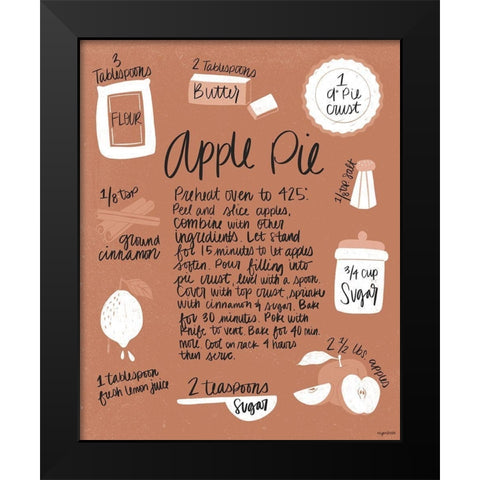 3
Tablespoons
FLOUR
2 Tablespoons
Butter
1
9" Pie
crust
Apple Pie
1/8 tsp
ground
cinnamon
1/8 tsp salt
Preheat oven to 425°.
Peel and slice apples,
combine with other
ingredients. Let stand
for 15 minutes to let apples
soften. Pour filling into
pie crust, level with a spoon.
Cover with top crust, sprinkle
with cinnamon & sugar. Bake
for 30 minutes. Poke with
knife to vent. Bake for 40 min.
more. Cool on rack 4 hours
then serve.
3/4 cup
Sugar
1 tablespoon
fresh lemon juice
2 teaspoons
Sugar
2 1/2 lbs apples